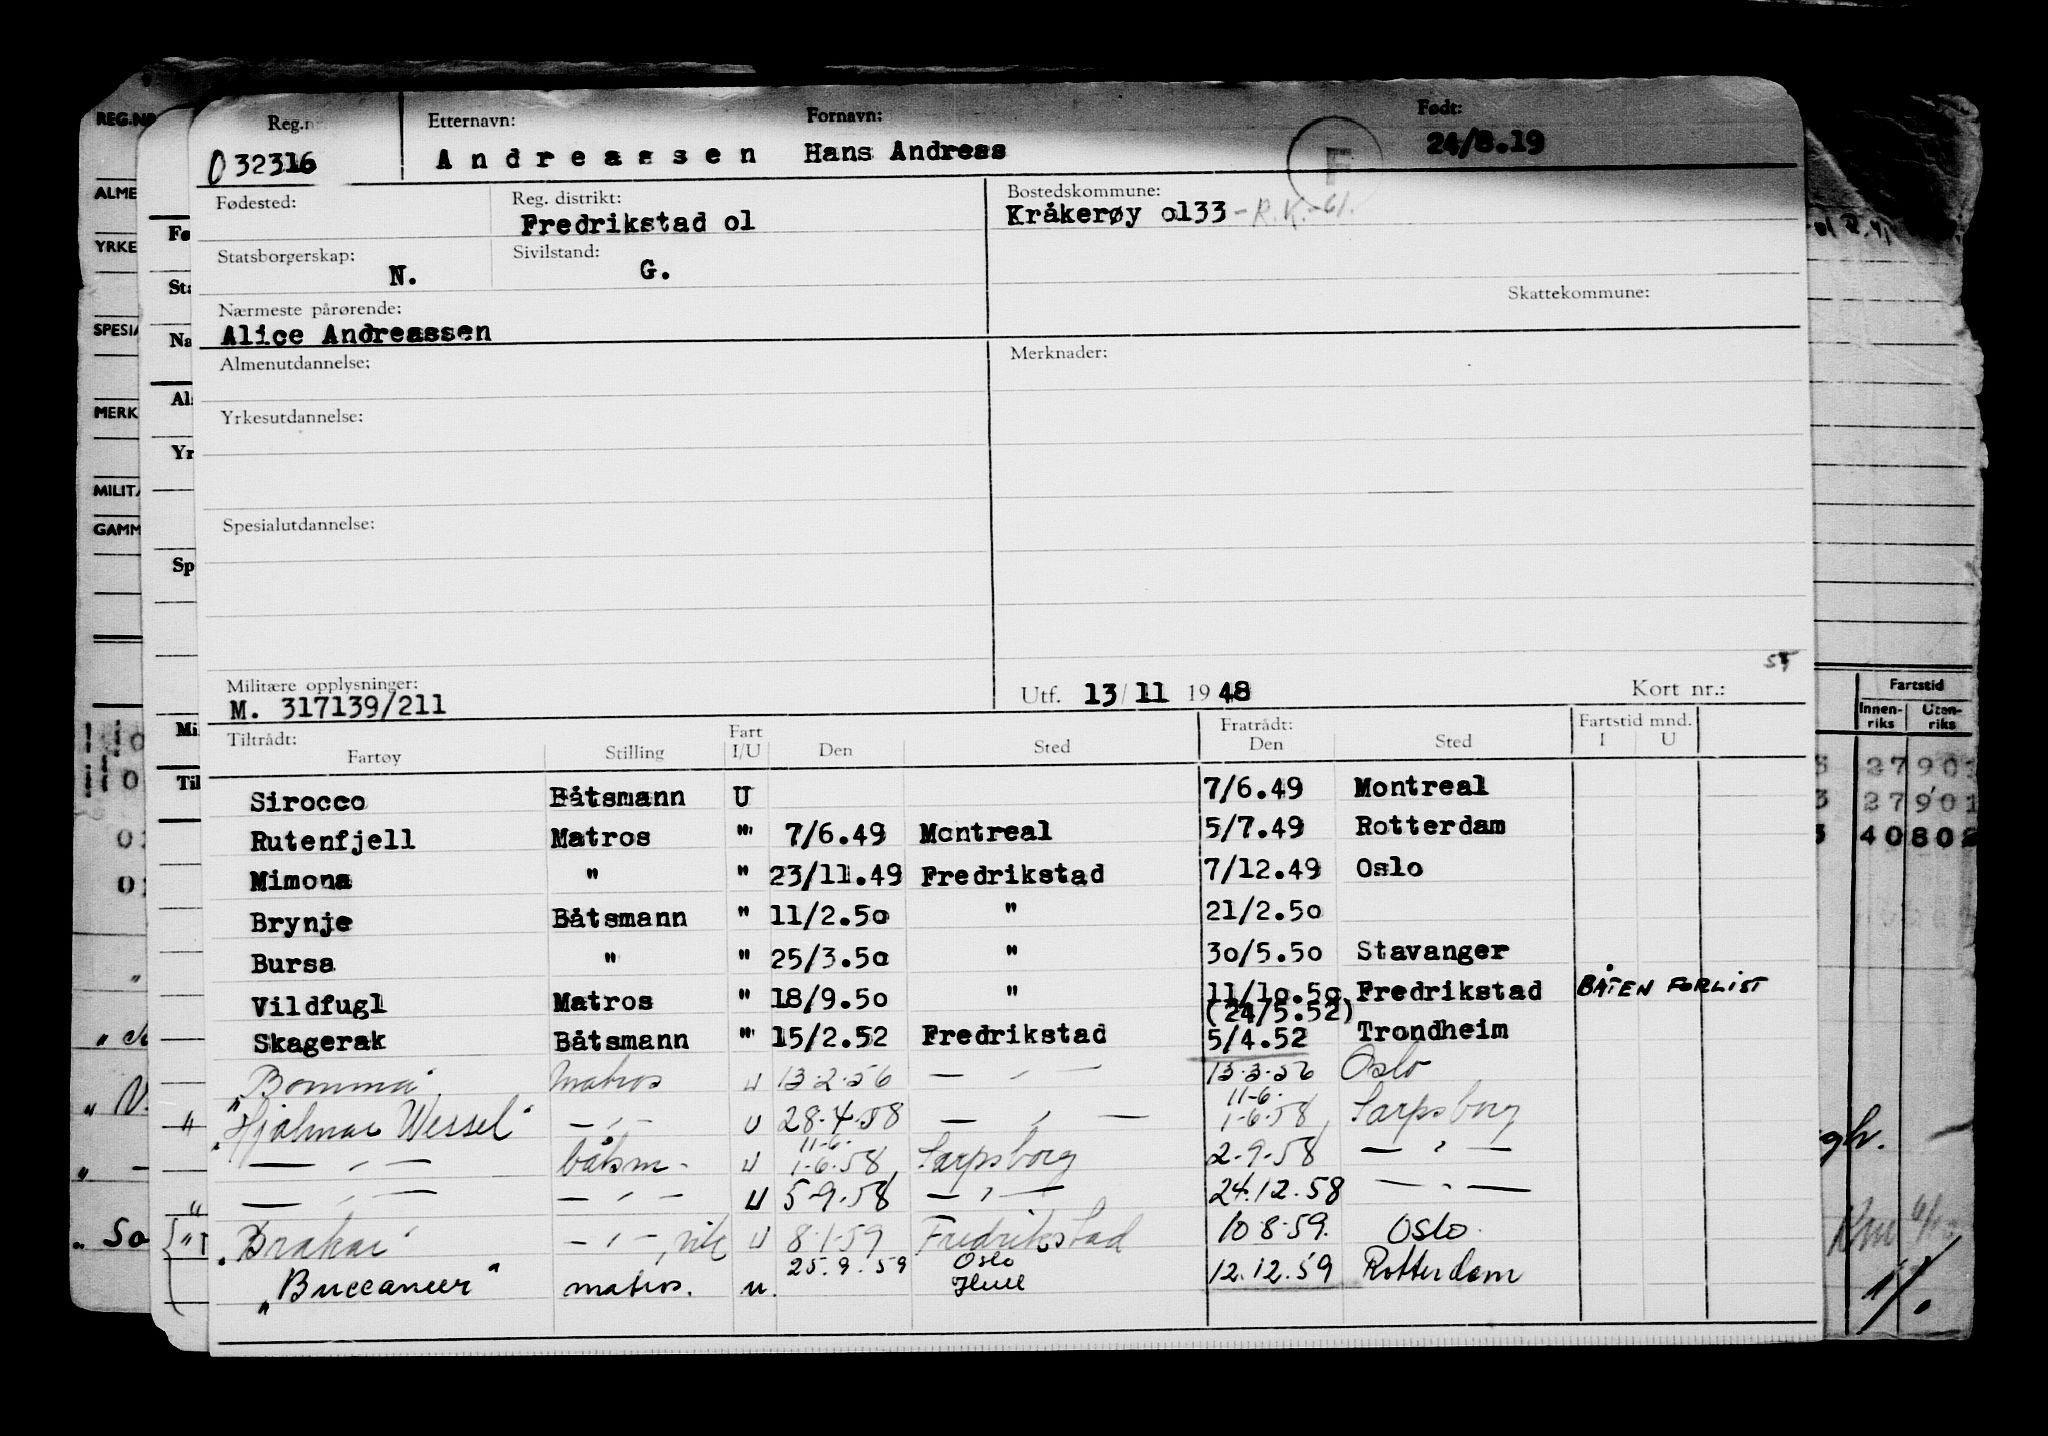 Reg.n
Etternavn:
Fornavn:
Født:
032316
Andreassen
Hans Andreas
F
24/8.19
Fødested:
Reg. distrikt:
Fredrikstad o1
Bostedskommune:
Kråkerøy o133 - R.K.-61.
Statsborgerskap:
N.
Sivilstand:
G.
Skattekommune:
Nærmeste pårørende:
Alice Andreassen
Almenutdannelse:
Merknader:
Yrkesutdannelse:
Spesialutdannelse:
Militære opplysninger:
M. 317139/211
Utf. 13/11 1948
Kort nr.:
Tiltrådt:
Fratrådt:
Fartstid mnd.
Fartøy Stilling Fart I/U Den Sted Den Sted I U
Sirocco Båtsmann U 7/6.49 Montreal
Rutenfjell Matros " 7/6.49 Montreal 5/7.49 Rotterdam
Mimona " " 23/11.49 Fredrikstad 7/12.49 Oslo
Brynje Båtsmann " 11/2.50 " 21/2.50
Bursa " " 25/3.50 " 30/5.50 Stavanger
Vildfugl Matros " 18/9.50 " 11/10.50 Fredrikstad BÅTEN FORLIST
(24/5.52)
Skagerak Båtsmann " 15/2.52 Fredrikstad 5/4.52 Trondheim
"Bomma" matros u 13-2-56 — " — 13-3-56 Oslo
11-6.
"Hjalmar Wessel" — " — u 28-4-58 — " — 1-6-58, Sarpsborg
11-6.
— " — båtsm- u 1-6-58, Sarpsborg 2-9-58 — " —
— " — — " — u 5-9-58 — " — 24.12.58 — " —
"Brakar" — " — u 8-1-59 Fredrikstad 10-8-59. Oslo.
25.9.59 Oslo
"Buccaneer" matros. u. 12.12.59 Rotterdam
REG.NR
ALME
YRKE
SPESIA
MERK
MILITÆ
GAMM
Fø
Sta
Na
Al
Yr
Sp
Mil
Til
Fartstid
Innen-riks
Uten-riks
27901
27901
40802